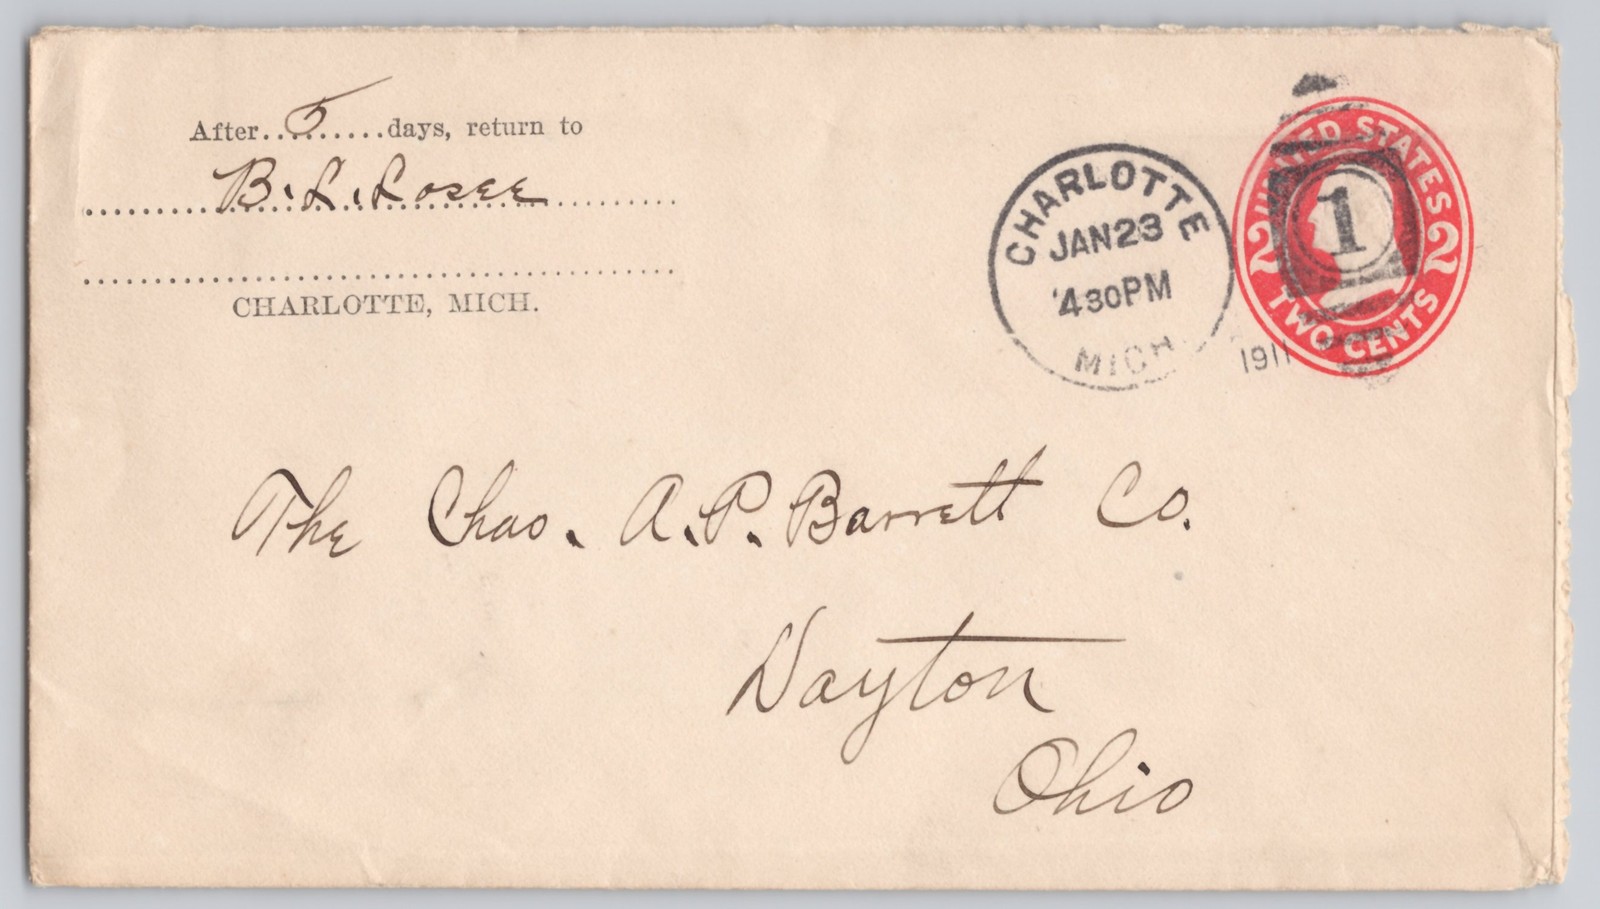 After..5.......days, return to
B. L. Losee
CHARLOTTE, MICH.
CHARLOTTE
JAN 23
430PM
MICH
1911
UNITED STATES
1
2 2
TWO CENTS
The Chas. A. P. Barrett Co.
Dayton
Ohio